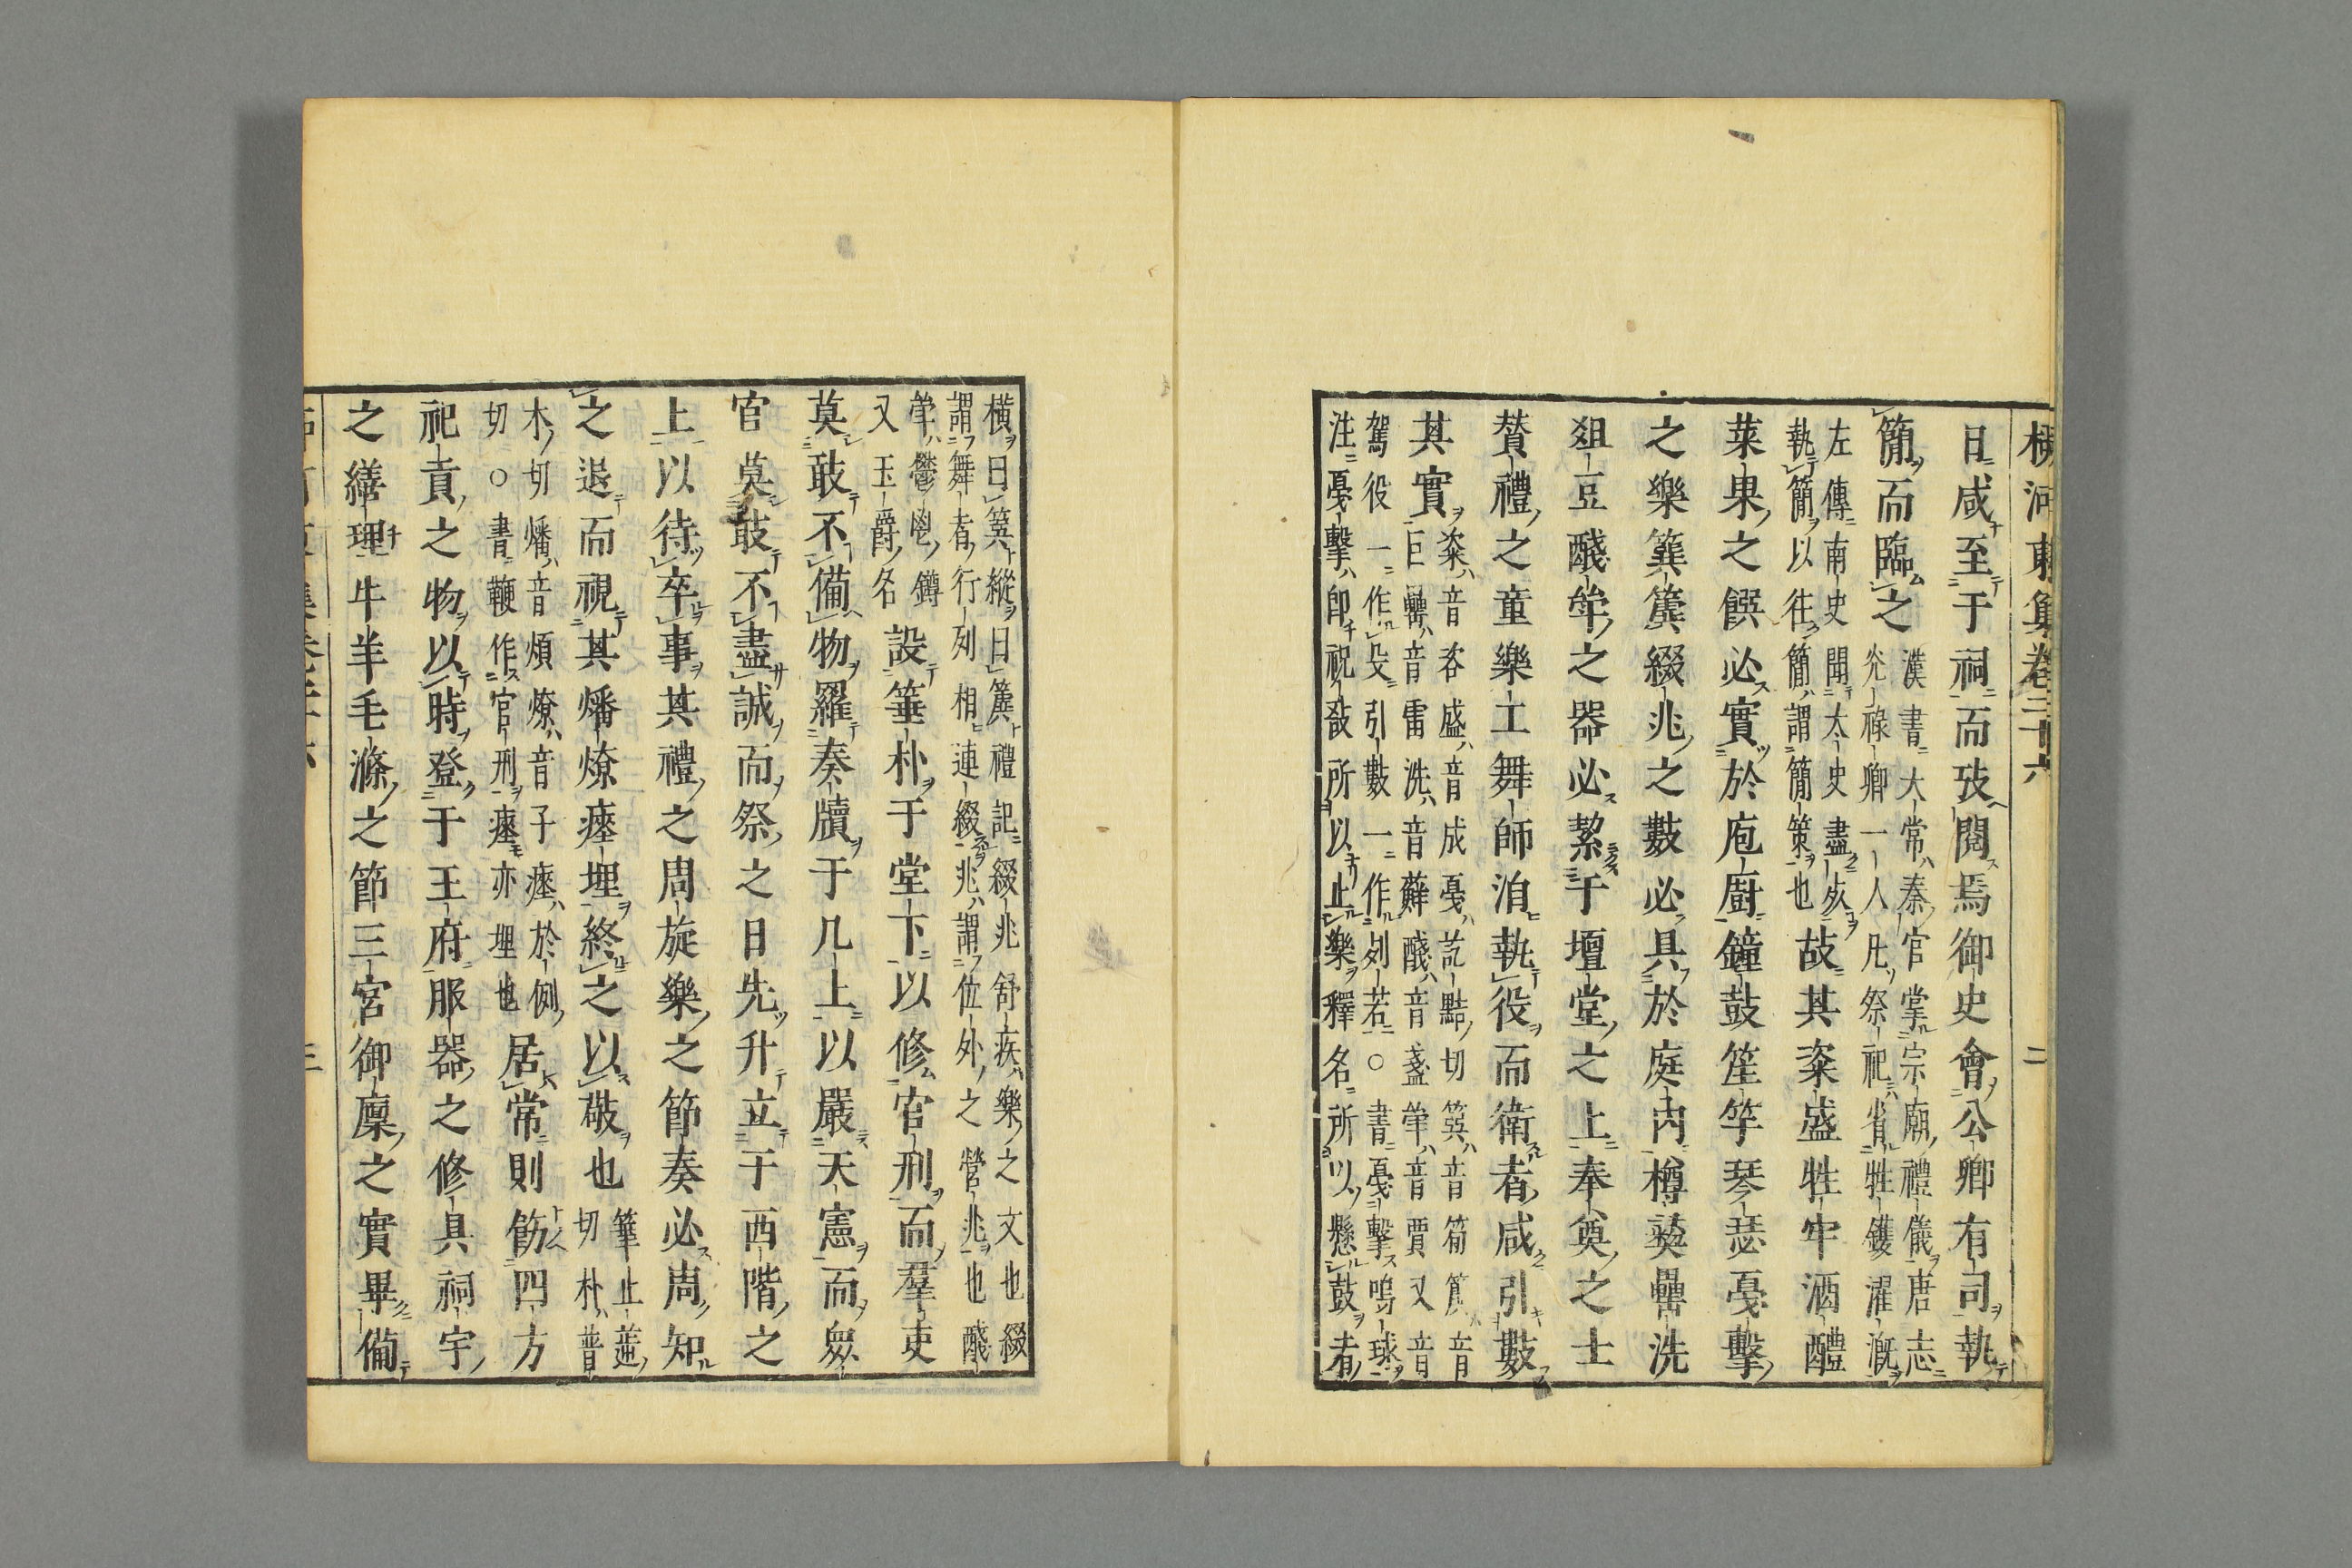 柳河東集卷二十六 二
日咸至于祠而攷閱焉御史會公卿有司執
簡而臨之
漢書大常秦官掌宗廟禮儀唐志
光祿卿一人凡祭祀省牲鑊濯漑
左傳南史聞太史盡歿
執簡以往簡謂簡策也
故其粢盛牲牢酒醴
菜果之饌必實於庖廚鐘鼓笙竽琴瑟戞擊
之樂簨簴綴兆之數必具於庭內樽彝罍洗
俎豆醆斚之器必絜于壇堂之上奉奠之士
賛禮之童樂工舞師洎執役而衛者咸引數
其實
粢音咨盛音成戞訖黠切簨音筍簴音
巨罍音雷洗音蘚醆音盞斚音賈又音
駕役一作殳引數一作列若○書戞擊鳴球
注戞擊即柷敔所以止樂釋名所以懸鼓者
橫曰簨縱曰簴禮記綴兆舒疾樂之文也綴
謂舞者行列相連綴兆謂位外之營兆也醆
斚鬱鬯鐏
又玉爵名
設箠朴于堂下以修官刑而羣吏
莫敢不備物羅奏牘于几上以嚴天憲而眾
官莫敢不盡誠而祭之日先升立于西階之
上以待卒事其禮之周旋樂之節奏必周知
之退而視其燔燎瘞埋終之以敬也
箠止
切朴普
木切燔音煩燎音子瘞於例
切○書鞭作官刑瘞亦埋也
居常則飭四方
祀貢之物以時登于王府服器之修具祠宇
之繕理牛羊毛滌之節三宮御廩之實畢備